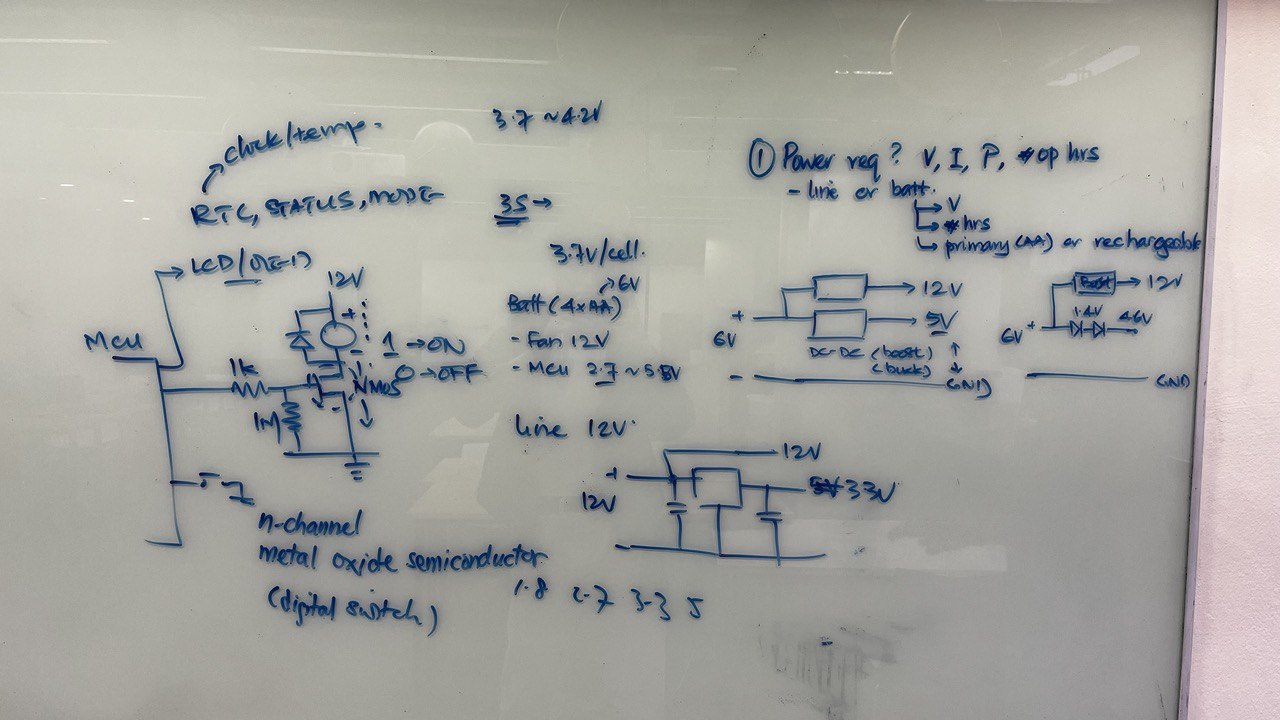 clock/temp.
RTC, STATUS, MODE
LCD/OLED
12V
+
-
MCU
1k
1M
NMOS
1 → ON
0 → OFF
n-channel
metal oxide semiconductor
(digital switch)
3.7 ~ 4.2V
3S →
3.7V/cell.
6V
Batt (4xAA)
- Fan 12V
- MCU 2.7 ~ 5.5V
Line 12V
+
12V
12V
5V 3.3V
1.8 2.7 3.3 5
① Power req? V, I, P, #op hrs
- line or batt.
→ V
→ # hrs
→ primary (AA) or rechargeable
+
6V
-
12V
5V
DC-DC (boost)
(buck)
GND
Boost → 12V
1.4V
4.6V
6V +
GND